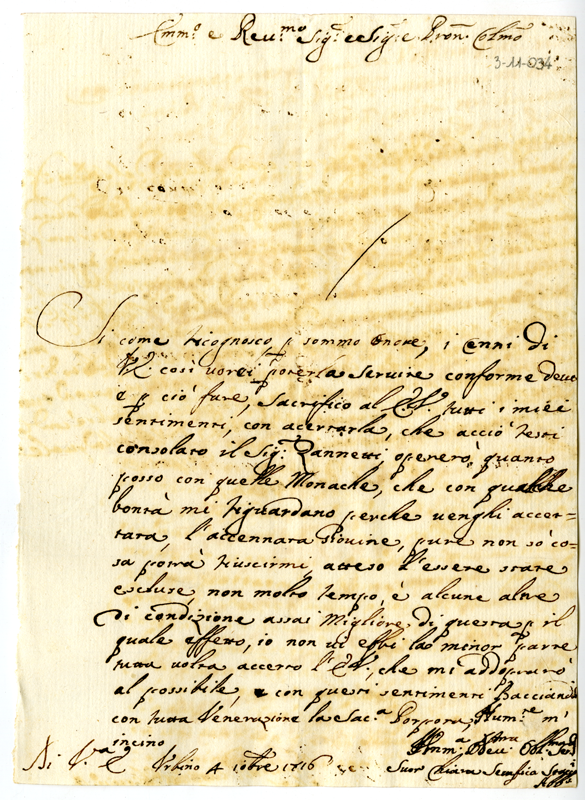 Emm.º e Reu.mo Sig.r e Sig.r e Pron. Colmo
3-11-034
Si come ricognosco p sommo onore, i cenni di
V.E. così uorei poterla seruire conforme deuo
e p ciò fare, sacrifico al E.V. tutti i miei
sentimenti, con acertarla, che acciò resti
consolato il Sig.r Zannetti operero, quanto
posso con quelle Monache, che con qualche
bontà mi riguardano perche uenghi accer-
tata, l'accennata Giouine, pure non sò co-
sa potrà riuscirmi, atteso l'essere state
escluse, non molto tempo, è alcune altre
di condizione assai Migliore, di questa p il
quale effetto, io non ui ebbi la minor parte
tutta uolta accerto l'E.V., che mi addoprarò
al possibile, e con questi sentimenti Bacciando
con tutta Venerazione la Sac.a Porpora Hum.te m'
incino
Di V.a E
Vrbino 4 10bre 1716
Suor Chiara Serafica